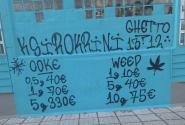 GHETTO
KSIROKRINI 15°12'
OOKE WEED
0,5g 40€ 1g 10€
1g 70€ 5g 40€
5g 330€ 10g 75€